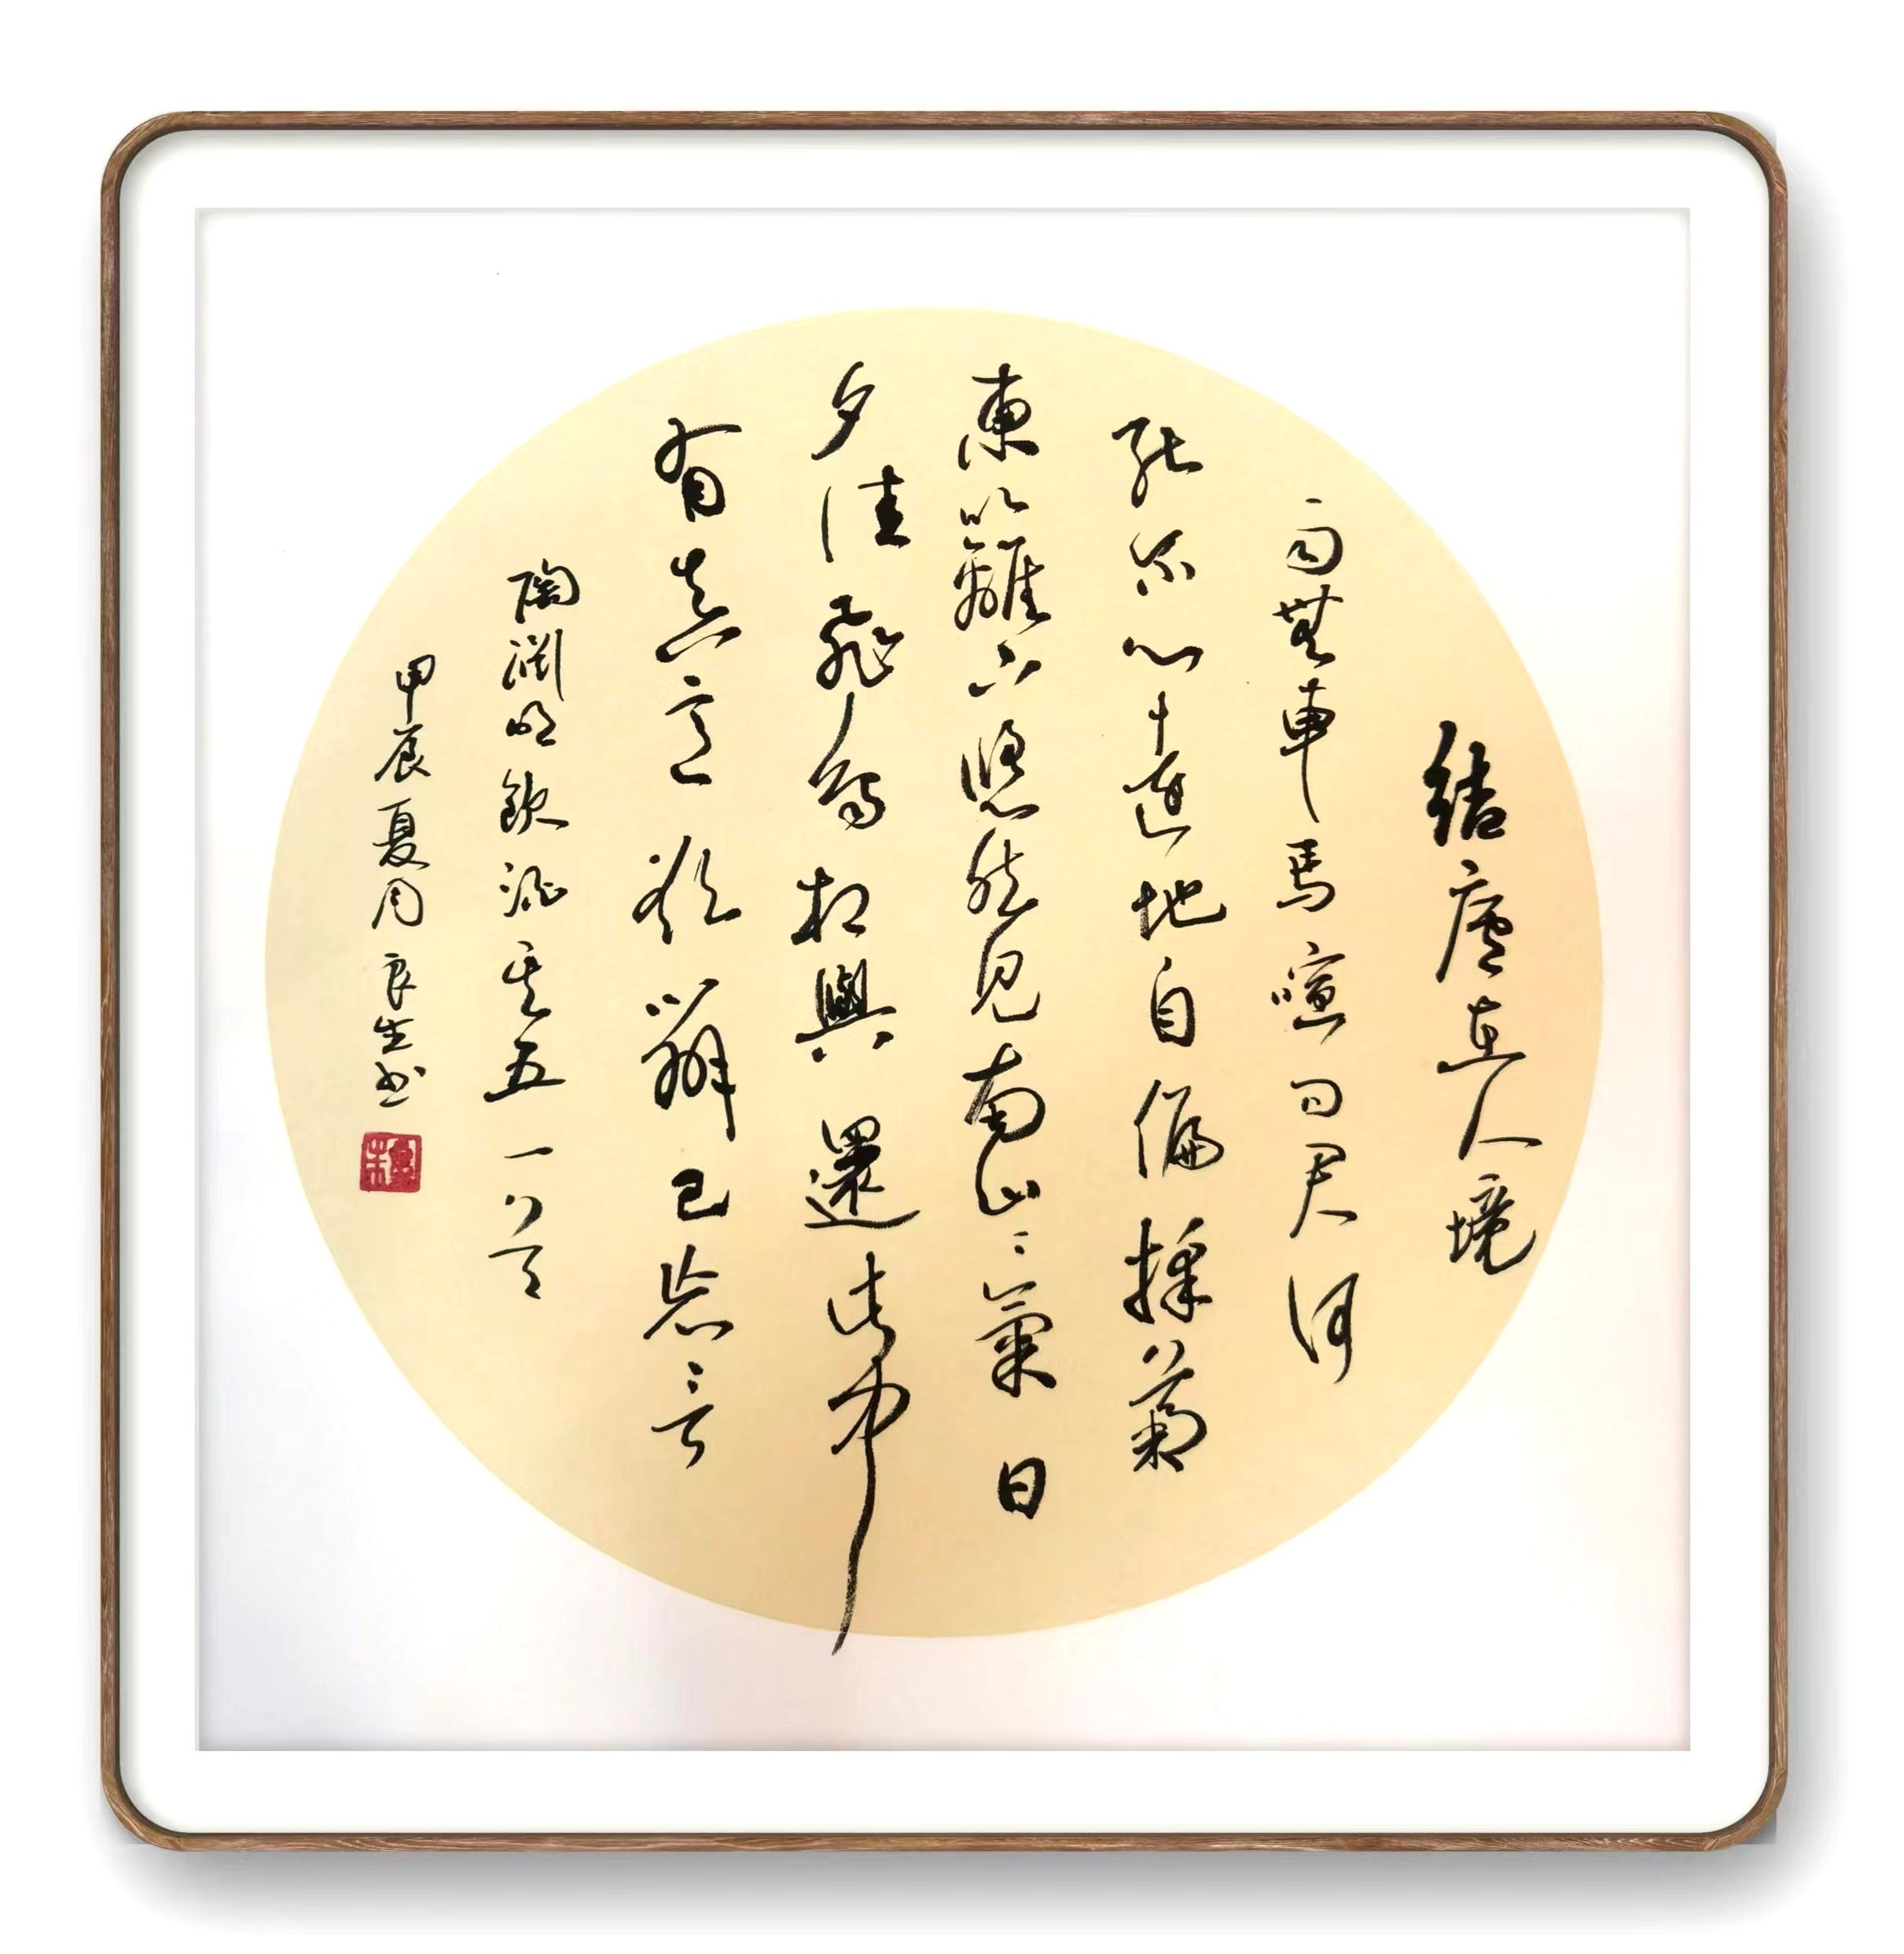 結廬在人境
而無車馬喧問君何
能尔心遠地自偏採菊
東籬下悠然見南山〻氣日
夕佳飛鳥相與還此中
有真意欲辨已忘言
陶淵明飲酒其五一首
甲辰夏月良生书